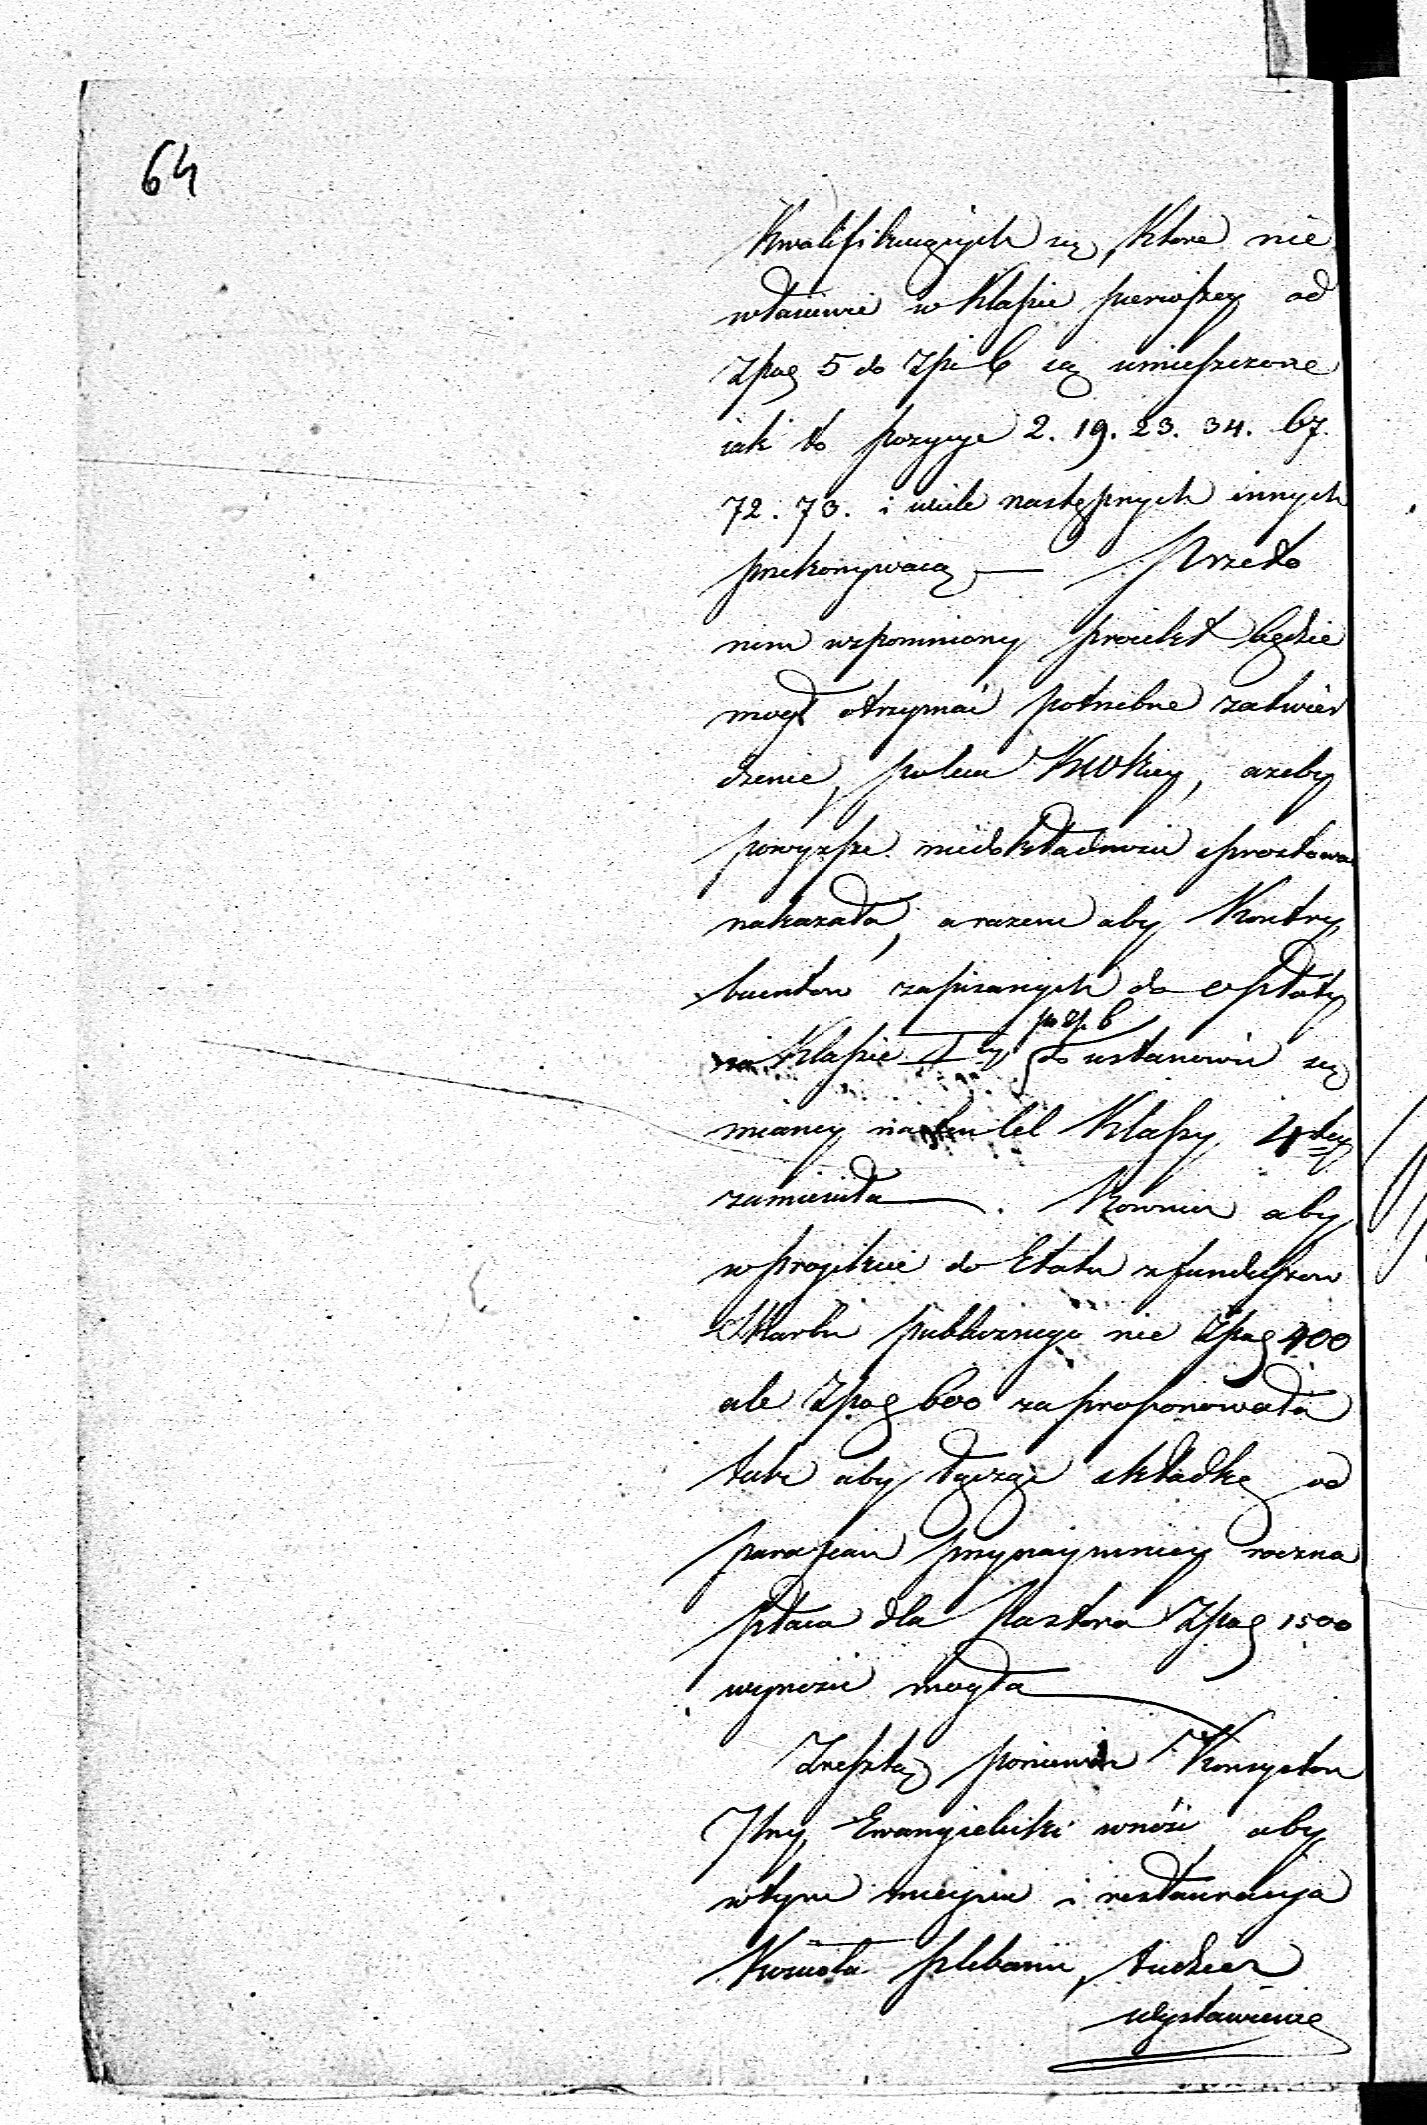 64
Kwalifikuiących się, które nie
właściwie w Klassie pierwszey od
Zpag 5 do Zp 6 są umieszczone
iak to pozycye 2. 19. 23. 34. 67.
72. 73. i wiele następnych innych
przekonywaią — Przeto
nim wspomniony proiekt będzie
mógł otrzymać potrzebne zatwier
dzenie, poleca KWKiey, ażeby
powyższe niedokładności sprostować
nakazała, a razem aby Kontry
buentów zapisanych do opłaty
w Klassie I ey po zp. 6 do ustanowić się
mianey Klassy 4tey
zamieniła —. Rownież aby
w projekcie do Etatu z funduszow
Skarbu publicznego nie Zpag 400
ale Zpag 600 zaproponowała
tak aby łącząc składkę od
parafian przynaymniey roczna
płaca dla Pastora Zpag 1500
wynosić mogła —
Zresztą ponieważ Konsystorz
Jlny Ewangielicki wnosi, aby
w tym mieyscu i restauracya
Kościoła plebanii, tudzież
wystawienie